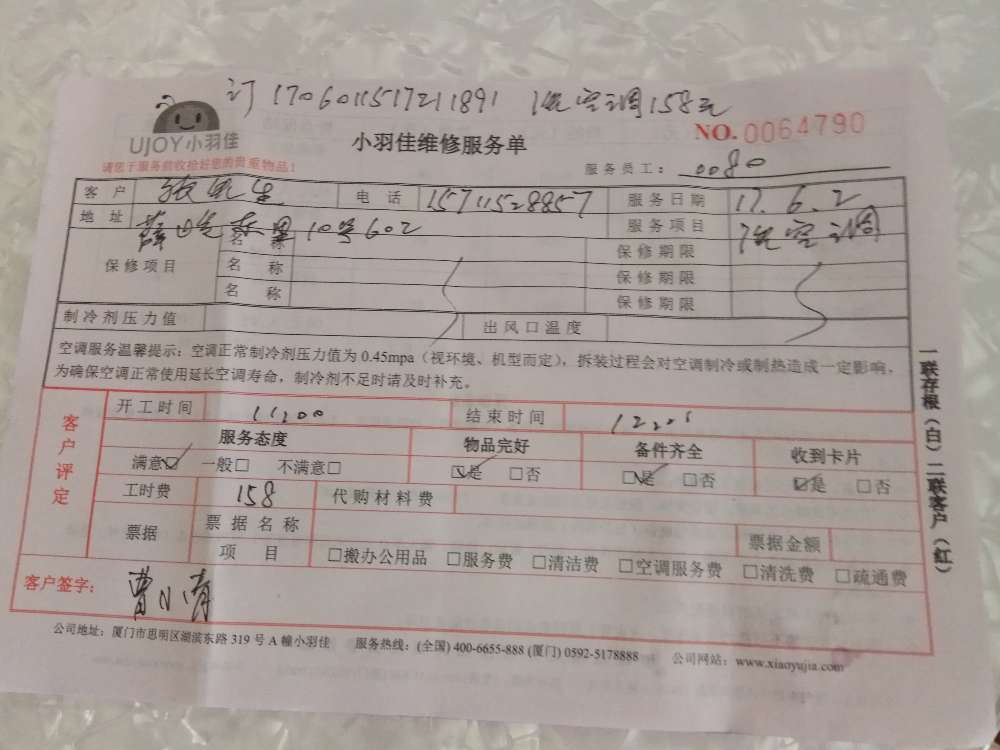 订 1706011517211891 洗空调158元
UJOY小羽佳
小羽佳维修服务单
NO.0064790
请您于服务前收拾好您的贵重物品!
服务员工: 0080
客户 张先生 电话 15711528857 服务日期 17.6.2
地址 薛岭 里10号602 服务项目 洗空调
保修项目 名称 保修期限
名称 保修期限
名称 保修期限
制冷剂压力值 出风口温度
空调服务温馨提示:空调正常制冷剂压力值为 0.45mpa(视环境、机型而定),拆装过程会对空调制冷或制热造成一定影响,
为确保空调正常使用延长空调寿命,制冷剂不足时请及时补充。
客户评定
开工时间 11:00 结束时间
服务态度 物品完好 备件齐全 收到卡片
满意☑ 一般□ 不满意□ ☑是 □否 ☑是 □否 ☑是 □否
工时费 158 代购材料费
票据 票据名称 票据金额
项目 □搬办公用品 □服务费 □清洁费 □空调服务费 □清洗费 □疏通费
客户签字: 曹小青
公司地址:厦门市思明区湖滨东路 319 号 A 幢小羽佳 服务热线:(全国) 400-6655-888 (厦门) 0592-5178888 公司网站:www.xiaoyujia.com
一联存根(白)二联客户(红)